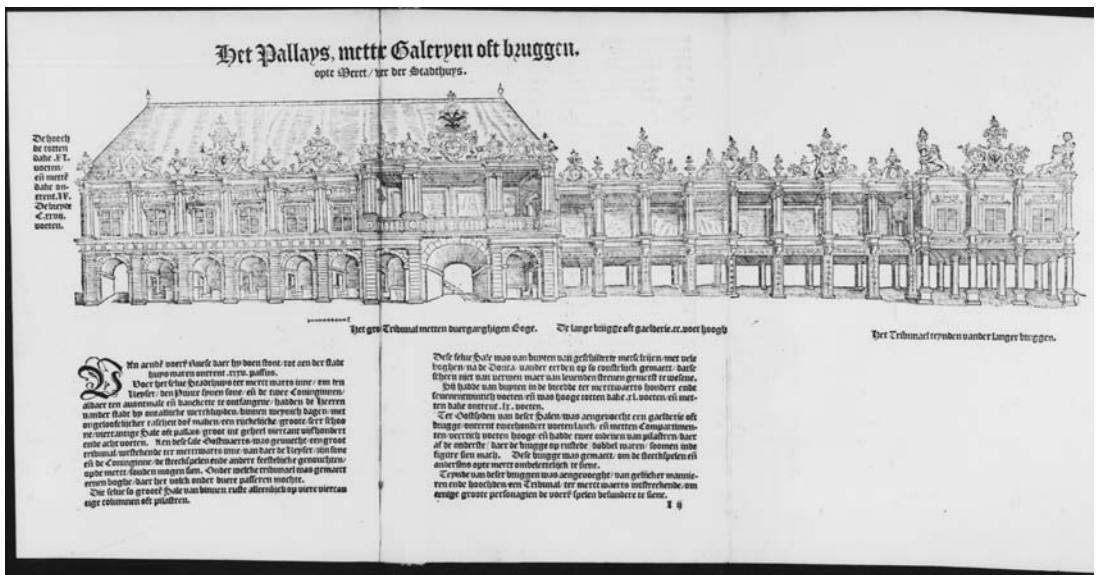 Het Pallays, mette Galeryen oft bruggen.
opte Merct / ver der Stadthuys.
De hooch
de totten
dake .XL.
voeten /
eñ mette
dake on-
trent .LX.
De breyde
voeten.
Het gro Tribunal metten duergancghigen Boge.
De lange brugge oft gaelderie.xx.voet hoogh
Het Tribunael teynden vander langer bruggen.
daer hy doen stont / tot aen der stadt
huys waren ontrent .xxxv. passus.
Voer het selue Stadthuys ter merct waerts inne / om den
Keyser / den Prince synen sone / eñ de twee Coninginnen /
aldaer ten auontmale eñ banckette te ontfangene / hadden de Heeren
vander stadt by ontallicke werckluyden / binnen weynich dagen / met
ongelooffelicker rasheit doē maken / een rijckelicke / groote / seer schoo
ne / viercantige Sale oft pallays / groot int geheel viercant vijfhondert
ende acht voeten. Aen dese sale Oostwaerts / was geuuecht een groot
tribunal / westrekende ter merctwaerts inne / van daer de Keyser / sijn sone
eñ de Coninginne / de steeckspelen ende andere feestelicke genouchten /
opde merct / souden mogen sien. Onder welcke tribunael was gemaect
eenen boghe / daer het volck onder duere passeren mochte.
Die selue so groote Sale van binnen ruste alleenlijck op viere viercan
tige columnen oft pilastren.
Dese selue Sale was van buyten van geschilderte merselrijen / met vele
boghen / na de Dorica / vander eerden op so constelijck gemaect / datse
scheen niet van verwen maer van leuenden steenen gemetst te wesene.
Sij hadde van buyten in de breedde ter merctwaerts hondert ende
seuenentwintich voeten / eñ was hooge totten dake .xl. voeten / eñ met-
ten dake ontrent .lx. voeten.
Ter Oostsyden van deser Salen / was aengevoecht een gaelderie oft
brugge / ontrent tweehondert voeten lanck / eñ metten Compartimen-
ten / veertich voeten hooge / eñ hadde twee ordenen van pilastren / daer
af de onderste / daer de brugge op rustede / dobbel waren / soomen inde
figure sien mach. Dese brugge was gemaect / om de steeckspelen eñ
andersins opte merct onbeletteliick te siene.
Teynde van deser bruggen was aengevoeght / van gelijcker mannie-
ren ende hoochden een Tribunal / ter merctwaerts westreckende / om
eenige groote personagien de voerš spelen besundere te siene.
I ij